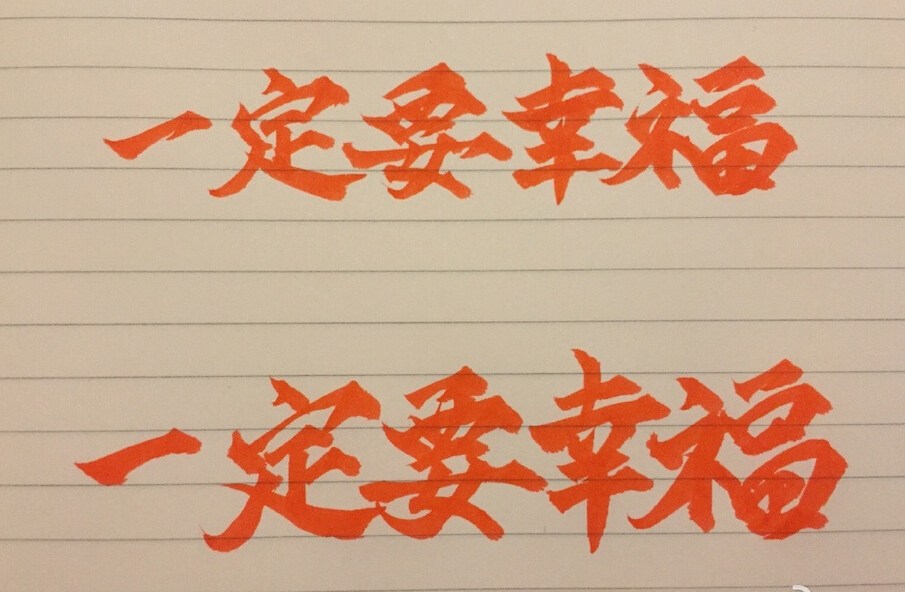 一定要幸福
一定要幸福